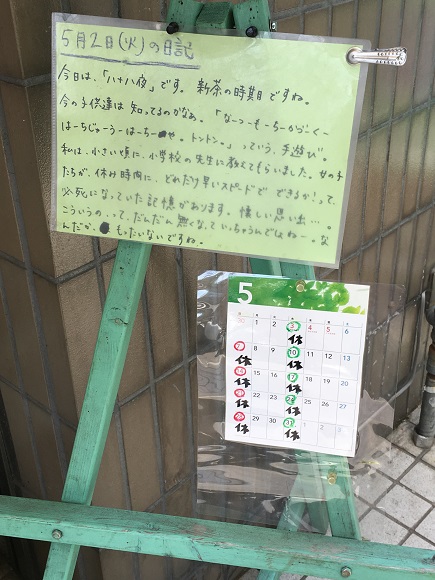 5月2日(火)の日記
今日は、「八十八夜」です。新茶の時期ですね。
今の子供達は知ってるのかなぁ。「なーつーもーちーかづーくー
はーちじゅーうーはーちーや。トントン。」っていう、手遊び。
私は、小さい頃に、小学校の先生に教えてもらいました。女の子
たちが、休み時間に、どれだけ早いスピードでできるか!って、
必死になっていた記憶があります。懐しい思い出…。
こういうのって、だんだん無くなっていっちゃうんでしょねー。な
んだか、もったいないですね。
5
30 1 2 3 4 5 6
7 8 9 10 11 12 13
休 休
14 15 16 17 18 19 20
休 休
21 22 23 24 25 26 27
休 休
28 29 30 31 1 2 3
休 休